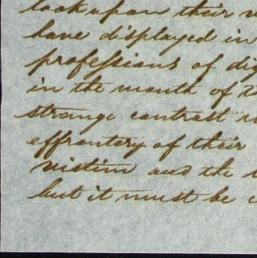 look upon their
have displayed in
professions of dig
in the mouth of
strange contrast
effrontery of their
victim and the
but it must be